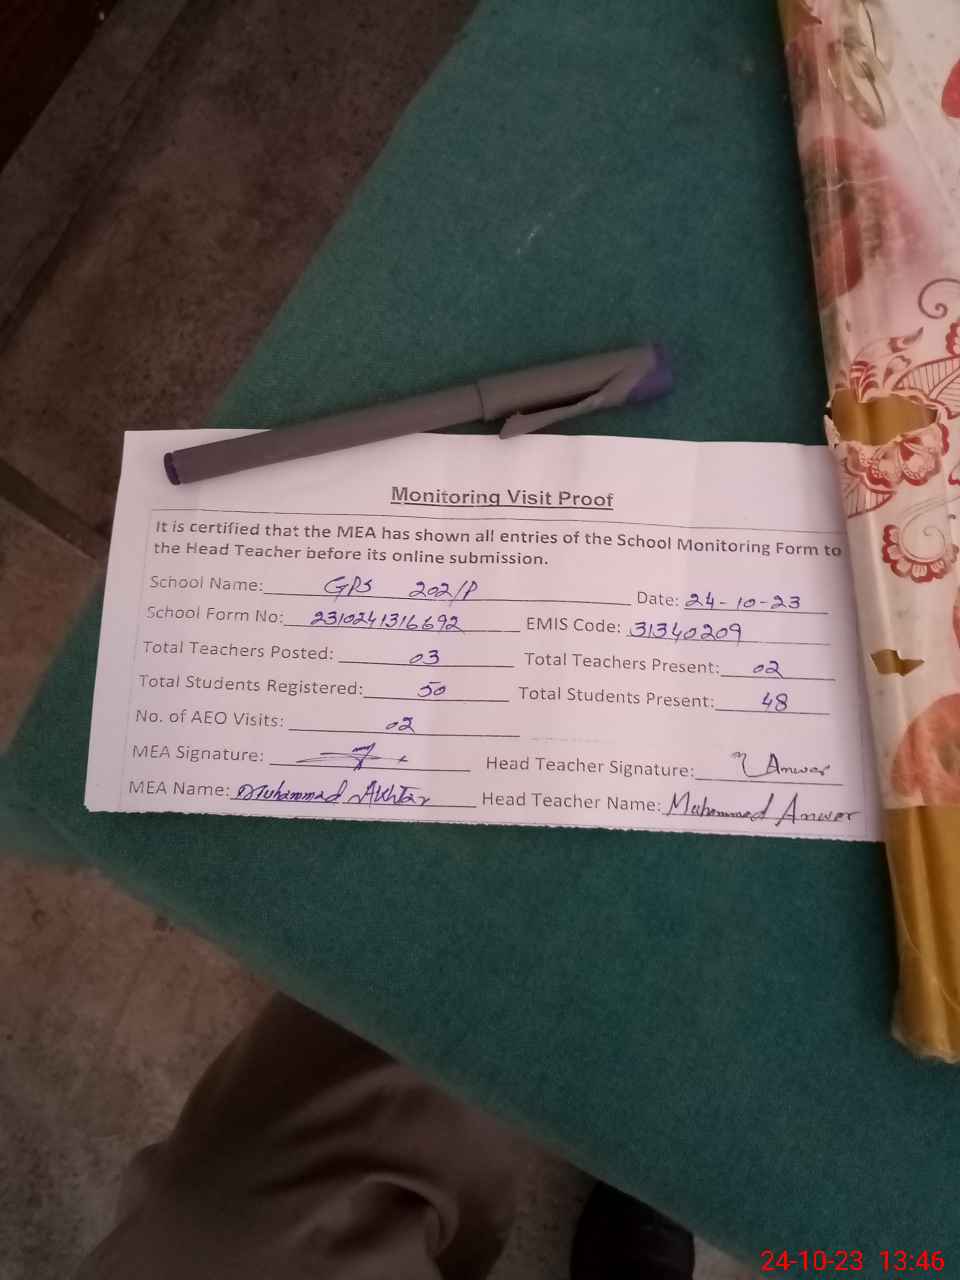 Monitoring Visit Proof
It is certified that the MEA has shown all entries of the School Monitoring Form to
the Head Teacher before its online submission.
School Name: GPS 202/P Date: 24-10-23
School Form No: 2310241316692 EMIS Code: 31340209
Total Teachers Posted: 03 Total Teachers Present: 02
Total Students Registered: 50 Total Students Present: 48
No. of AEO Visits: 02
MEA Signature: Head Teacher Signature: M Anwar
MEA Name: Muhammad Akhtar Head Teacher Name: Muhammad Anwer
24-10-23 13:46